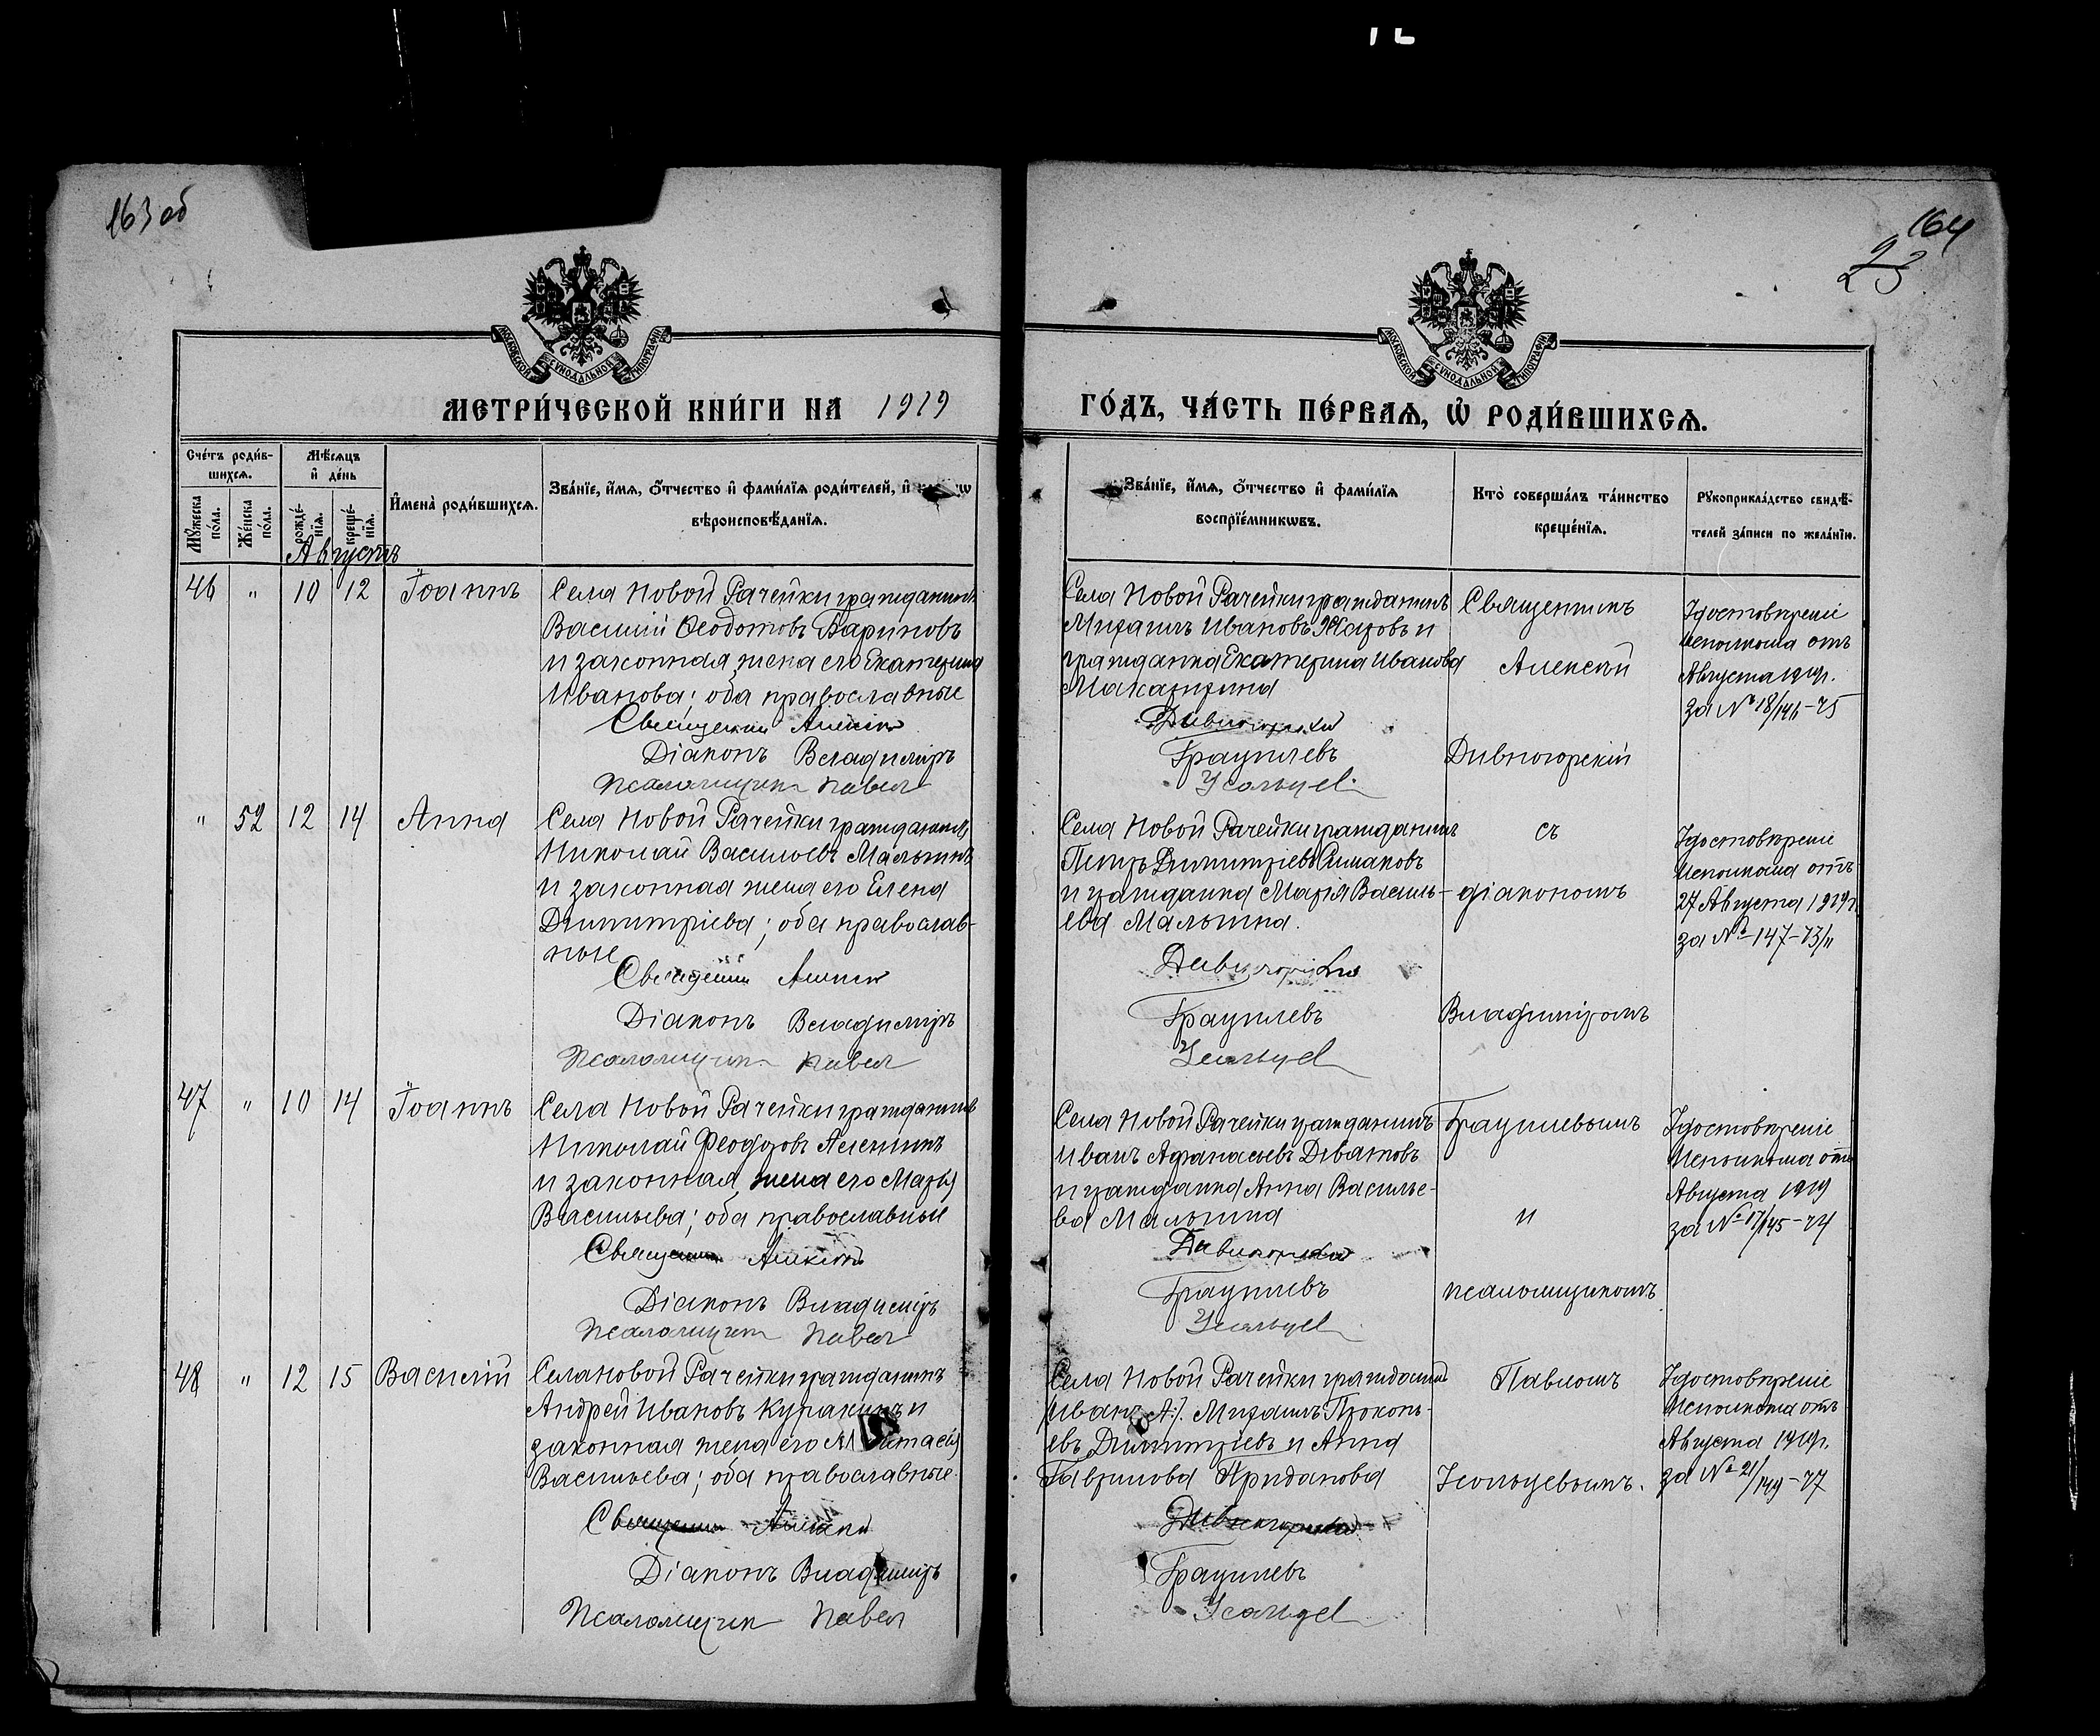 163 об
164
23
МОСКОВСКОЙ СѴНОДАЛЬНОЙ ТИПОГРАФІИ
МОСКОВСКОЙ СѴНОДАЛЬНОЙ ТИПОГРАФІИ
МЕТРИ́ЧЕСКОЙ КНИ́ГИ НА 1919
ГО́ДЪ, ЧА́СТЬ ПЕ́РВАѦ, Ѡ҆ РОДИ́ВШИХСѦ.
Сче́тъ роди́в-
шихсѧ.
Мꙋ́жеска
по́ла.
Же́нска
по́ла.
Мѣ́сѧцъ
и҆ де́нь
рожде́-
нїѧ.
креще́-
нїѧ.
И҆мена̀ роди́вшихсѧ.
Зва́нїе, и҆́мѧ, ѻ҆́тчество и҆ фами́лїѧ роди́телей, и҆
вѣроисповѣ́данїѧ.
Зва́нїе, и҆́мѧ, ѻ҆́тчество и҆ фами́лїѧ
воспрїе́мникѡвъ.
Кто̀ соверша́лъ та́инство
креще́нїѧ.
Рꙋкоприкла́дство свидѣ́-
телей за́писи по жела́нїю.
Августъ
46 " 10 12 Іоаннъ
Села Новой Рачейки гражданинъ
Василій Ѳеодотовъ Бариновъ
и законная жена его Екатерина
Иванова; оба православные
Священникъ Алексій
Діаконъ Владиміръ
Псаломщикъ Павел
Села Новой Рачейки гражданинъ
Михаилъ Ивановъ Жаровъ и
гражданка Екатерина Иванова
Дивногорскій
Грацилевъ
Усольцев
Священникъ
Алексѣй
Дивногорскій
Удостовѣреніе
Исполкома отъ
Августа 1919г.
за № 18/146-75
" 52 12 14 Анна
Села Новой Рачейки гражданинъ
Николай Васильевъ Малышкъ
и законная жена его Елена
Димитріева; оба православ-
ные
Священникъ Алексій
Діаконъ Владиміръ
Псаломщикъ Павел
Села Новой Рачейки гражданинъ
Петръ Димитріевъ Симаковъ
и гражданка Марія Василь-
ева Малышна.
Дивногорскій
Грацилевъ
Усольцев
съ
діакономъ
Владиміромъ
Удостовѣреніе
Исполкома отъ
27 Августа 1919г.
за № 147-73/11
47 " 10 14 Іоаннъ
Села Новой Рачейки гражданинъ
Николай Феодоровъ
и законная жена его Марья
Васильева; оба православные
Священникъ Алексій
Діаконъ Владиміръ
Псаломщикъ Павел
Села Новой Рачейки гражданинъ
Иванъ Афанасьевъ Деватовъ
и гражданка Анна Василье-
ва
Дивногорскій
Грацилевъ
Усольцев
Грацилевымъ
и
псаломщикомъ
Удостовѣреніе
Исполкома отъ
Августа 1919
за № 17/145-74
48 " 12 15 Василій
Села Новой Рачейки гражданинъ
Андрей Ивановъ Куракинъ и
законная жена его
Васильева; оба православные
Священникъ Алексій
Діаконъ Владиміръ
Псаломщикъ Павел
Села Новой Рачейки гражданинъ
Михаилъ Прокопь-
евъ Димитріевъ и Анна
Гаврилова Приданова
Дивногорскій
Грацилевъ
Усольцев
Павломъ
Усольцевымъ.
Удостовѣреніе
Исполкома отъ
Августа 1919г.
за № 21/149-77